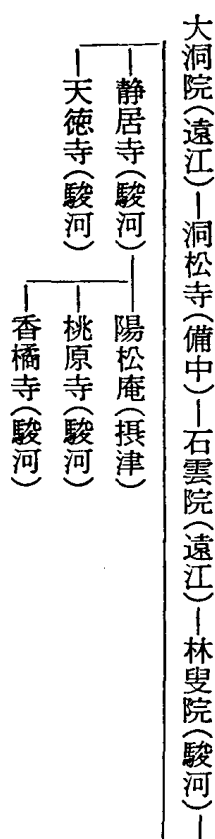 大洞院（遠江）―洞松寺（備中）―石雲院（遠江）―林叟院（駿河）―
静居寺（駿河）―陽松庵（摂津）
桃原寺（駿河）
香橘寺（駿河）
天徳寺（駿河）